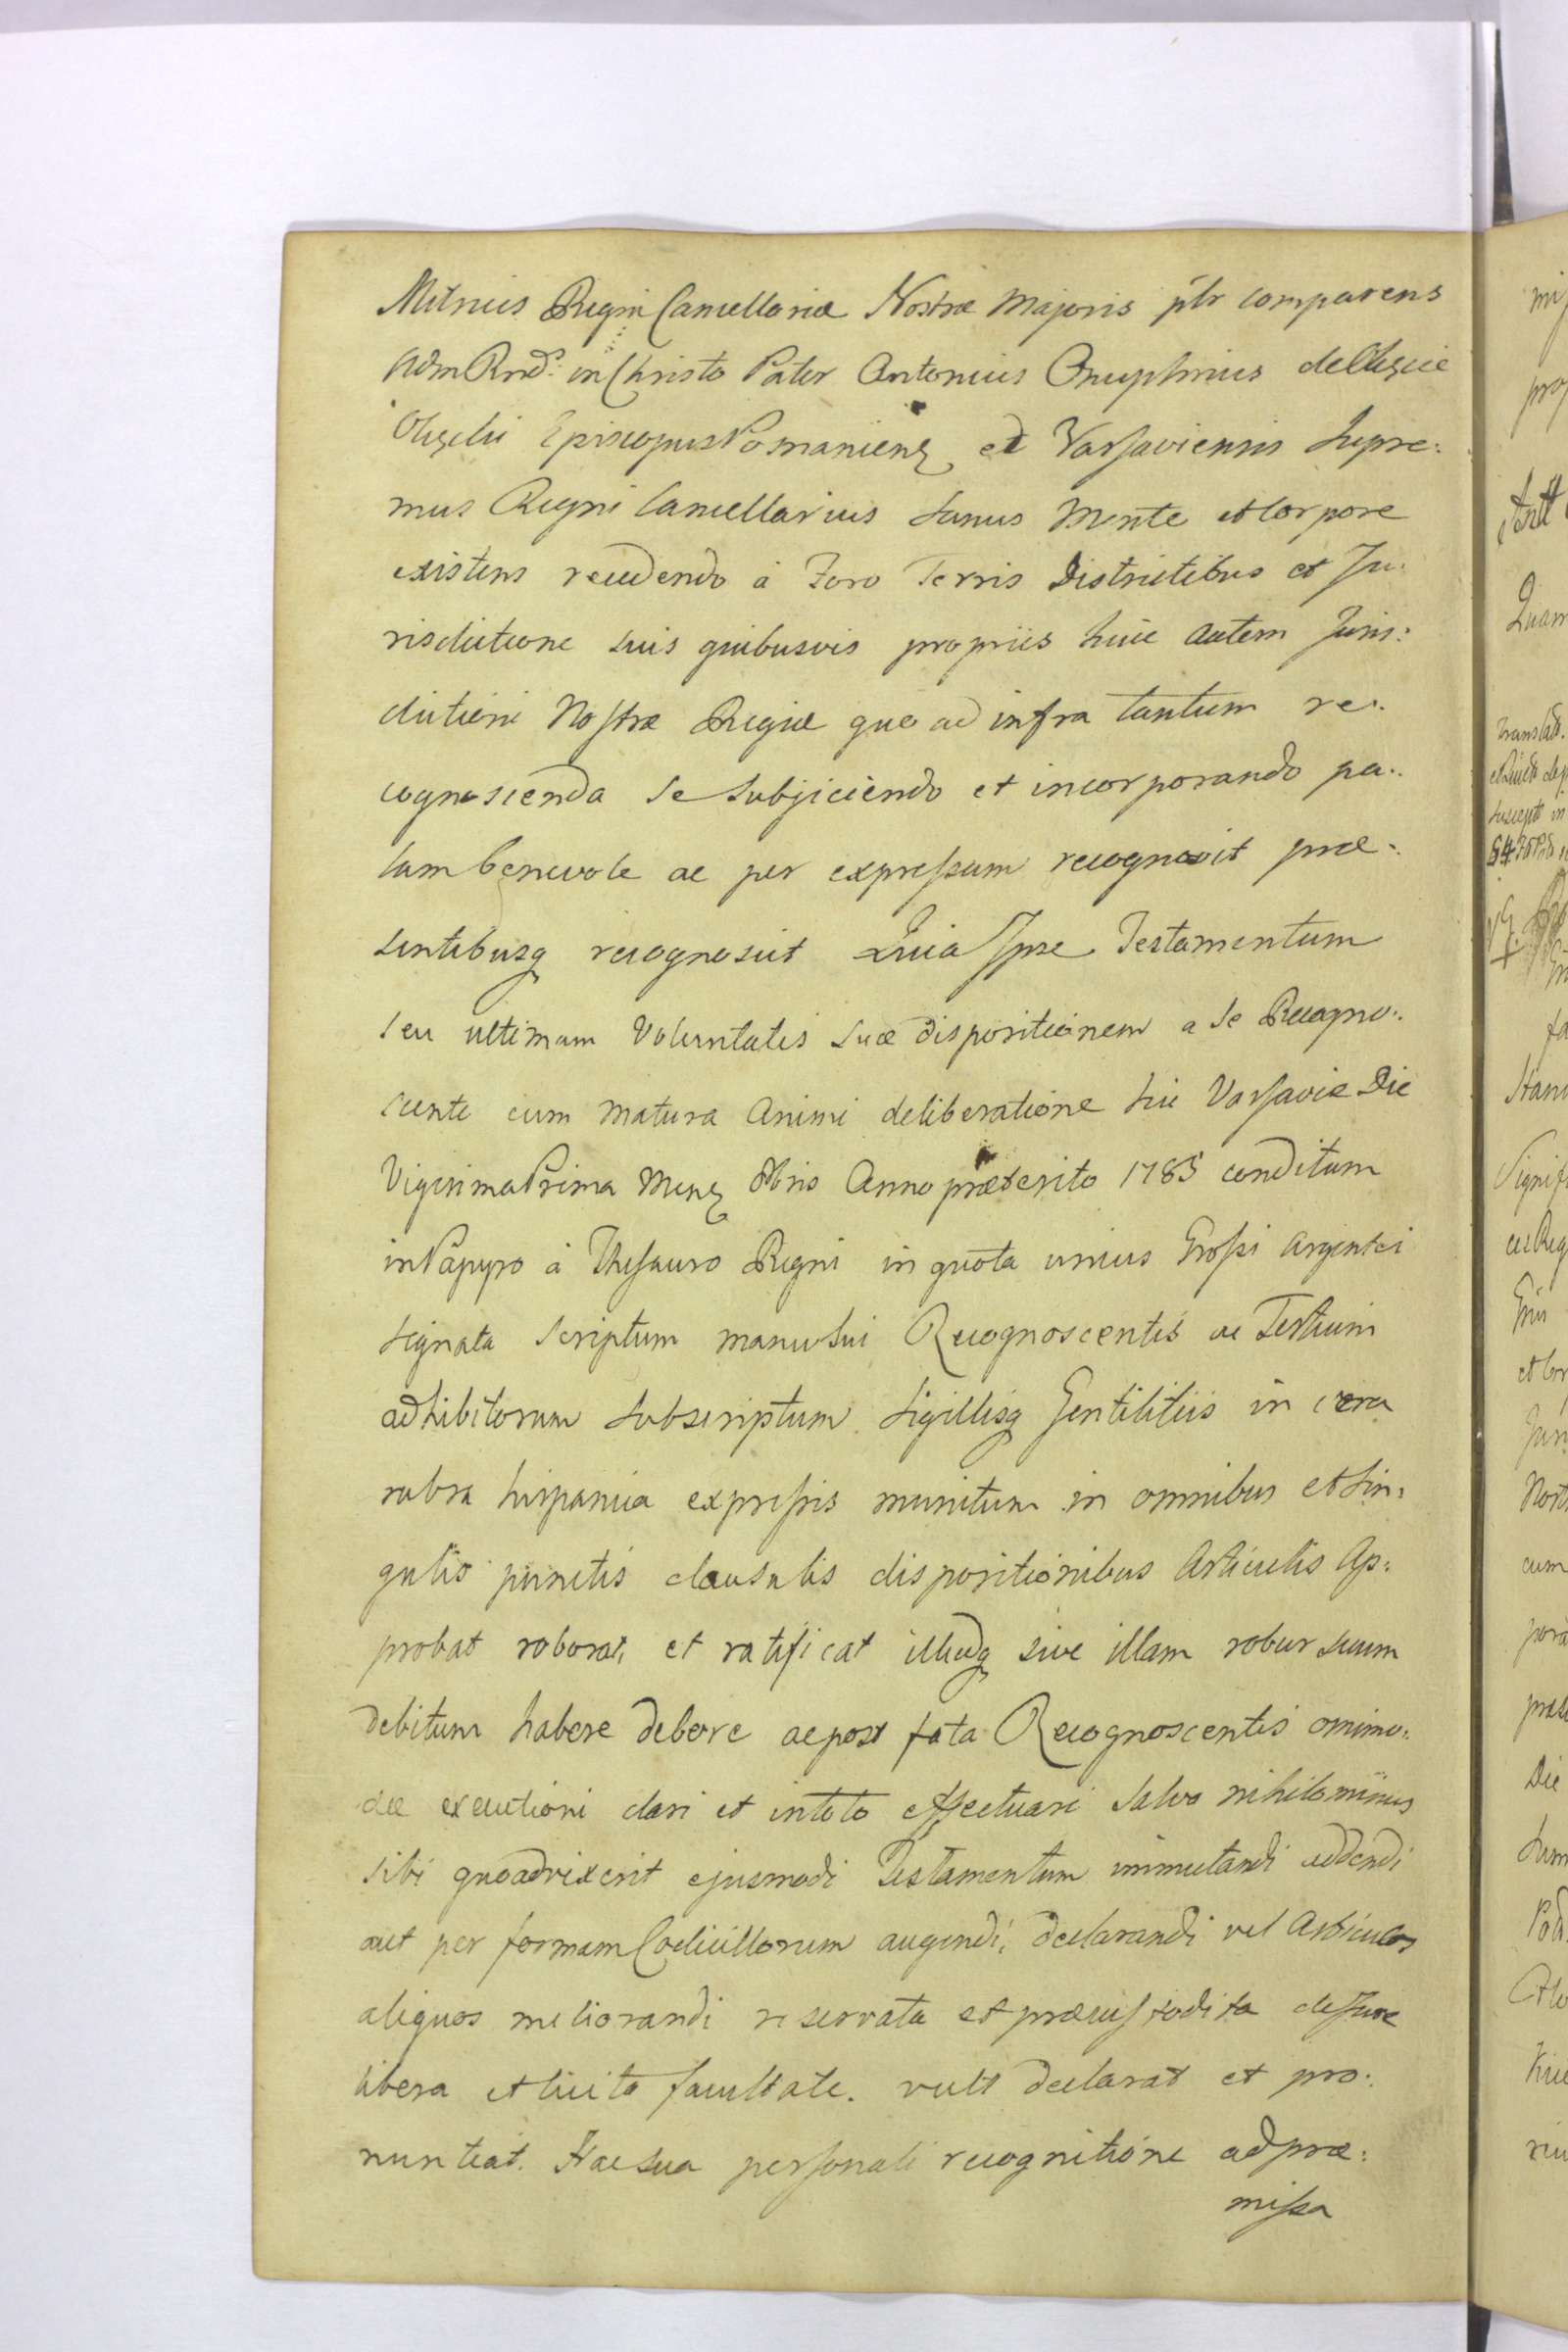 Metricis Regni Cancellariæ Nostræ Majoris pltr comparens
AdmRnd9: in Christo Pater Antonius Onuphrius de Okęcie
Okęcki Episcopus Posnaniens et Varsaviensis Supre:
mus Regni Cancellarius Sanus Mente et Corpore
existens recedendo à Foro Terris Districtibus et Ju:
risdictione suis quibusvis propriis huic autem Juris:
dictioni Nostræ Regiæ quo ad infra tantum re:
cognoscenda Se Subjiciendo et incorporando pa:
lam benevole ac per expressum recognovit præ:
sentibusq recognoscit Quia Ipse Testamentum
seu ultimam Voluntatis Suæ dispositionem a Se Recogno:
scente cum matura Animi deliberatione hic Varsaviæ Die
Vigesima Prima Mens Xbris Anno præterito 1785 conditum
in Papyro à Thesauro Regni in quota unius Grossi Argentei
signata Scriptum manu Sui Recognoscentis ac Testium
adhibitorum Subscriptum Sigillisq Gentilitiis in cera
rubra hispanica expressis munitum in omnibus et Sin:
gulis punctis clausulis dispositionibus Articulis Ap:
probat roborat, et ratificat illudq sive illam robur suum
debitum habere debere ac post fata Recognoscentis omimo:
dæ executioni dari et in toto effectuari Salva nihilominus
sibi quoadvixerit ejusmodi Testamentum immutandi addendi
aut per formam Codicillorum augendi, declarandi vel Articulos
aliquos meliorandi reservata et præcustodita de Jure
libera et licita facultate. vult declarat et pro:
nuntiat. Hac sua personali recognitione ad præ:
missa